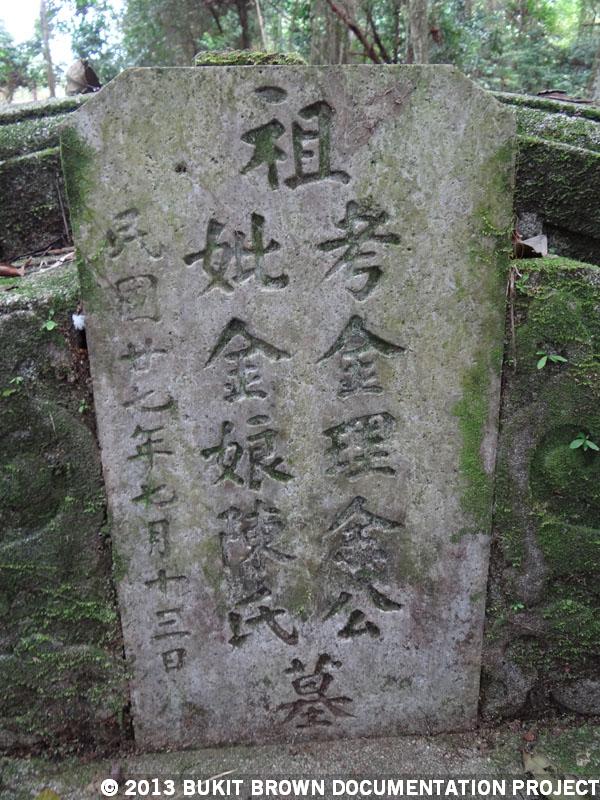 祖
考金理公
妣金娘陳氏
墓
民國廿七年七月十三日
© 2013 BUKIT BROWN DOCUMENTATION PROJECT